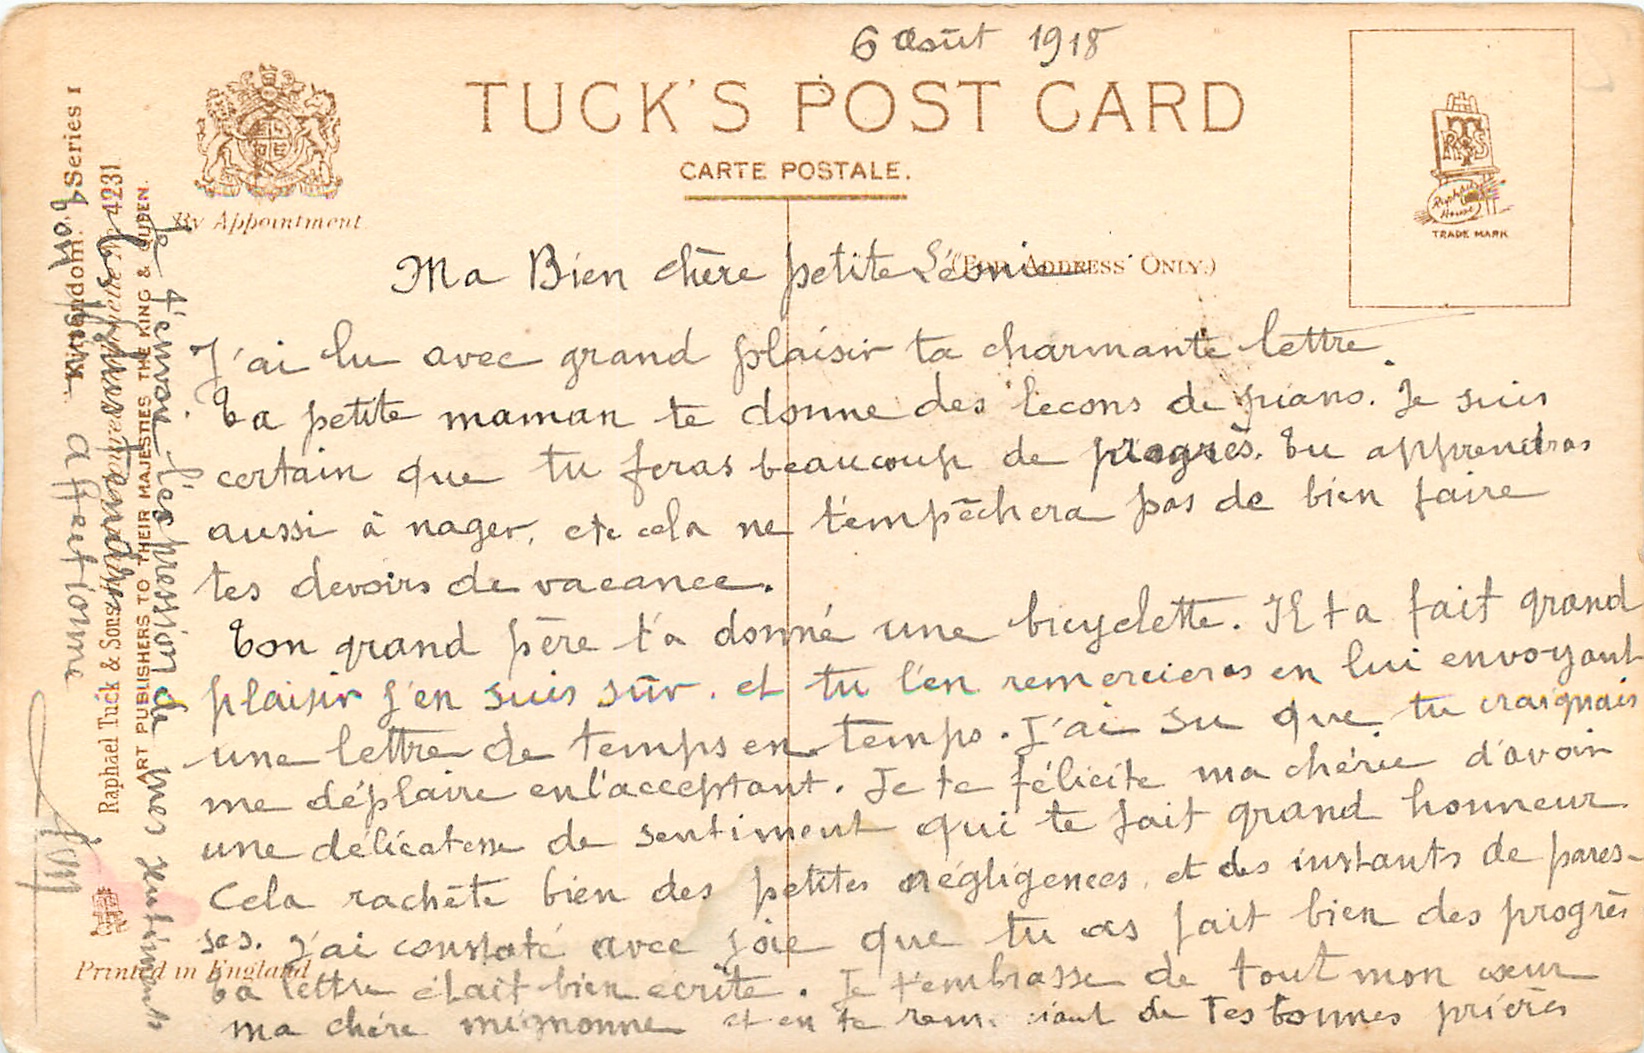 6 Août 1918
TUCK'S POST CARD
CARTE POSTALE.
By Appointment
(FOR ADDRESS ONLY.)
Raphael House
TRADE MARK
Ma Bien chère petite Léonie
J'ai lu avec grand plaisir ta charmante lettre.
Ta petite maman te donne des lecons de piano. Je suis
certain que tu feras beaucoup de progrès. Tu apprendras
aussi à nager, et cela ne t'empêchera pas de bien faire
tes devoirs de vacance.
Ton grand père t'a donné une bicyclette. Il t a fait grand
plaisir j'en suis sûr, et tu l'en remercieras en lui envoyant
une lettre de temps en temps. J'ai su que tu craignais
me déplaire en l'acceptant. Je te félicite ma chérie d'avoir
une délicatesse de sentiment qui te fait grand honneur
Cela rachète bien des petites négligences, et des instants de pares-
ses. J'ai constaté avec joie que tu as fait bien des progrès
Ta lettre était bien écrite. Je t'embrasse de tout mon cœur
ma chère mignonne et en te remerciant de tes bonnes prières
Je t'envoie l'expression de mes sentiments
les plus tendres
affectionné
"Kingdom." Series I
Raphael Tuck & Sons' 4231.
ART PUBLISHERS TO THEIR MAJESTIES THE KING & QUEEN.
Printed in England